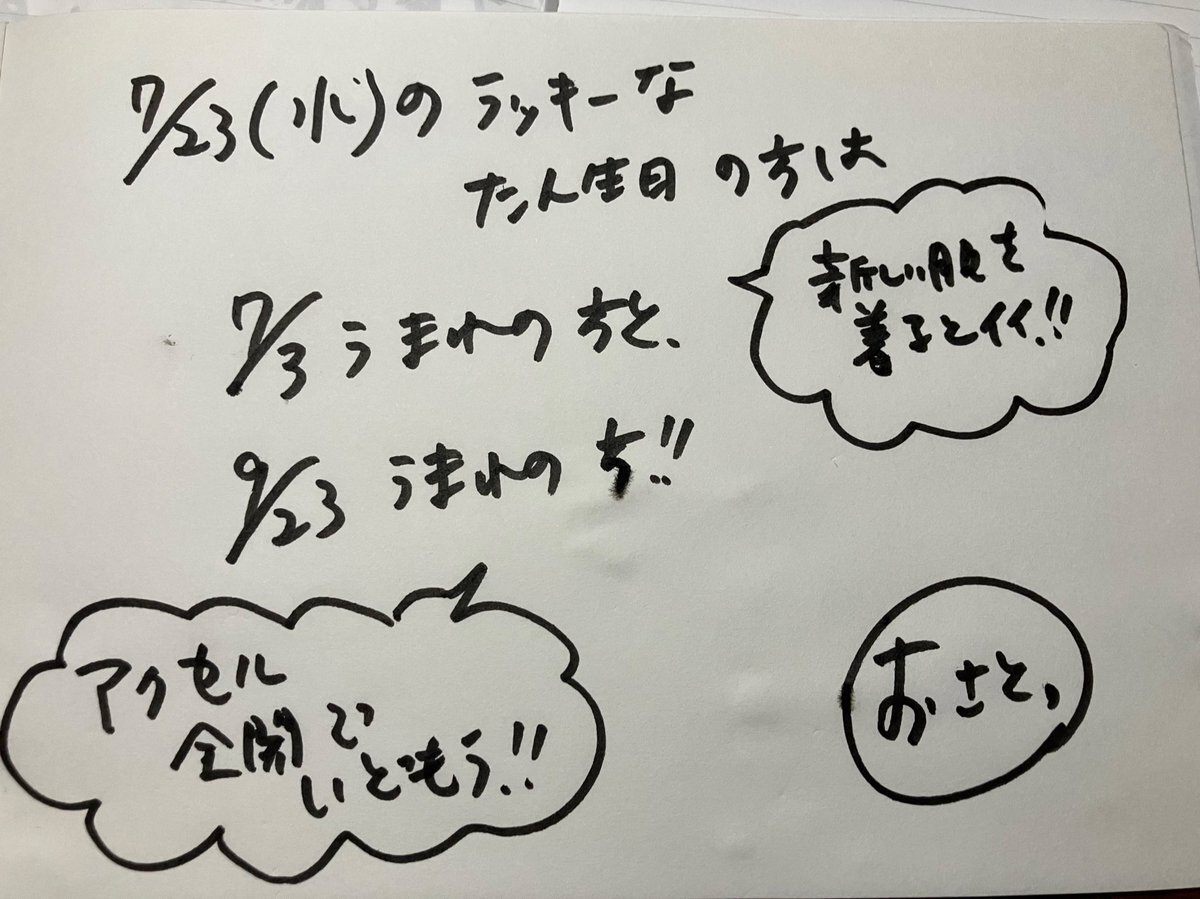 7/23(水)のラッキーな
たん生日の方は
新しい服を
着るとイイ!!
7/3うまれの方と、
9/23うまれの方!!
アクセル
全開で
いどもう!!
おさと、